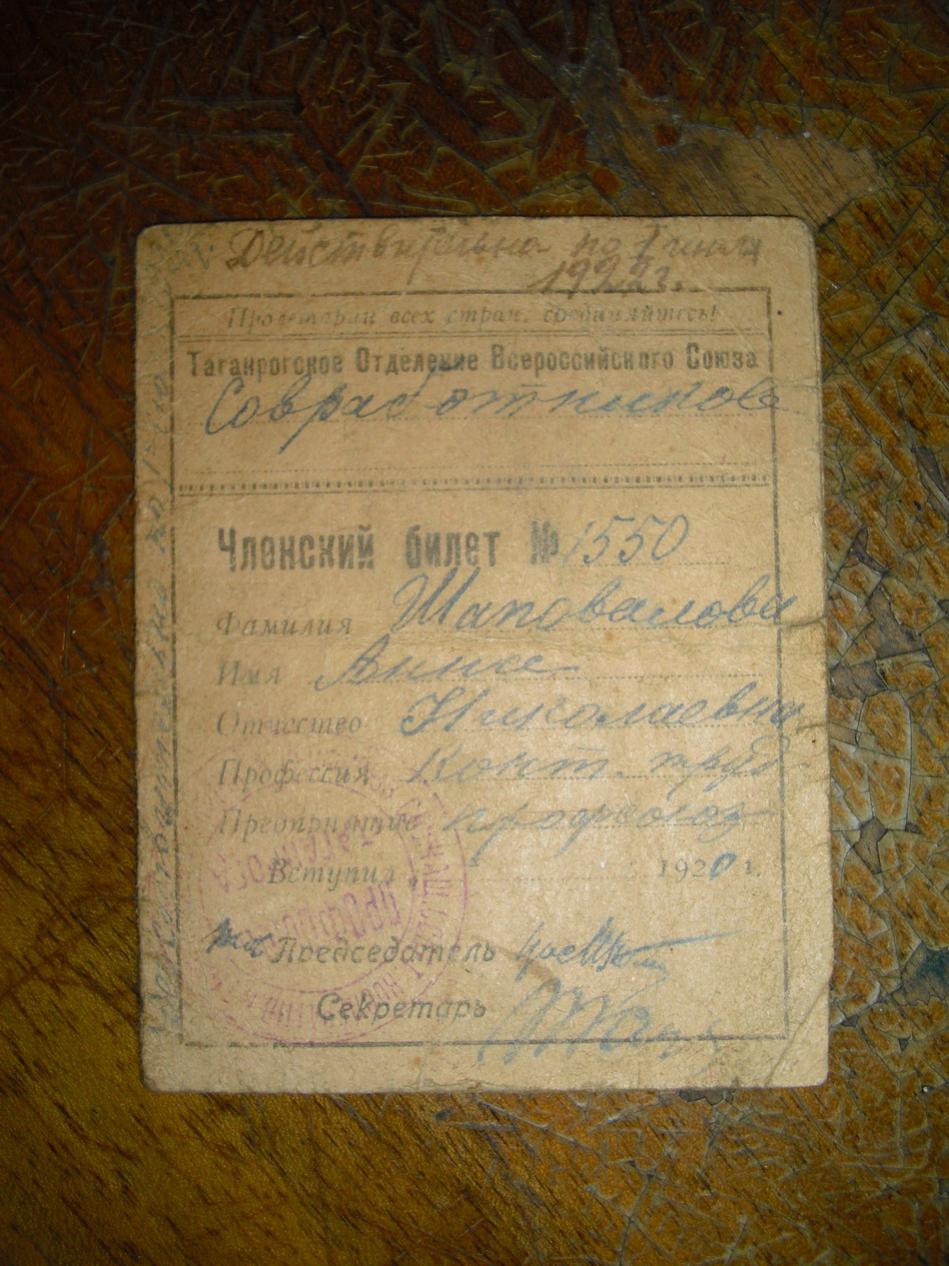 Действительна по 1 июля
1922 г.
Пролетарии всех стран, соединяйтесь!
Таганрогское Отделение Всероссийского Союза
Совработников
Членский билет № 1550
Фамилия Шаповалова
Имя Анна
Отчество Николаевна
Профессия Конт. труд.
Предприятие профсоюз
Вступил 1920 г.
Председатель
Секретарь